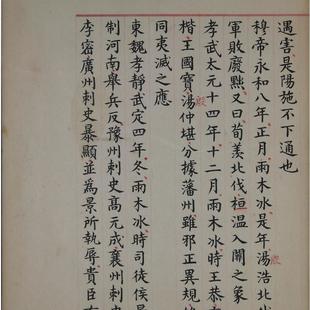 遇害是陽施不下通也
穆帝永和八年正月雨木冰是年湯浩北
殷
軍敗廢黜又曰荀羡北伐桓温入關之象
孝武太元十四年十二月雨木冰時王恭
楷王國寶湯仲堪分據藩州雖邪正異規
殷
同夷滅之應
東魏孝靜武定四年冬雨木冰時司徒侯
制河南舉兵反豫州刺史髙元成襄州刺史
李密廣州刺史暴顯並為景所執辱貴臣